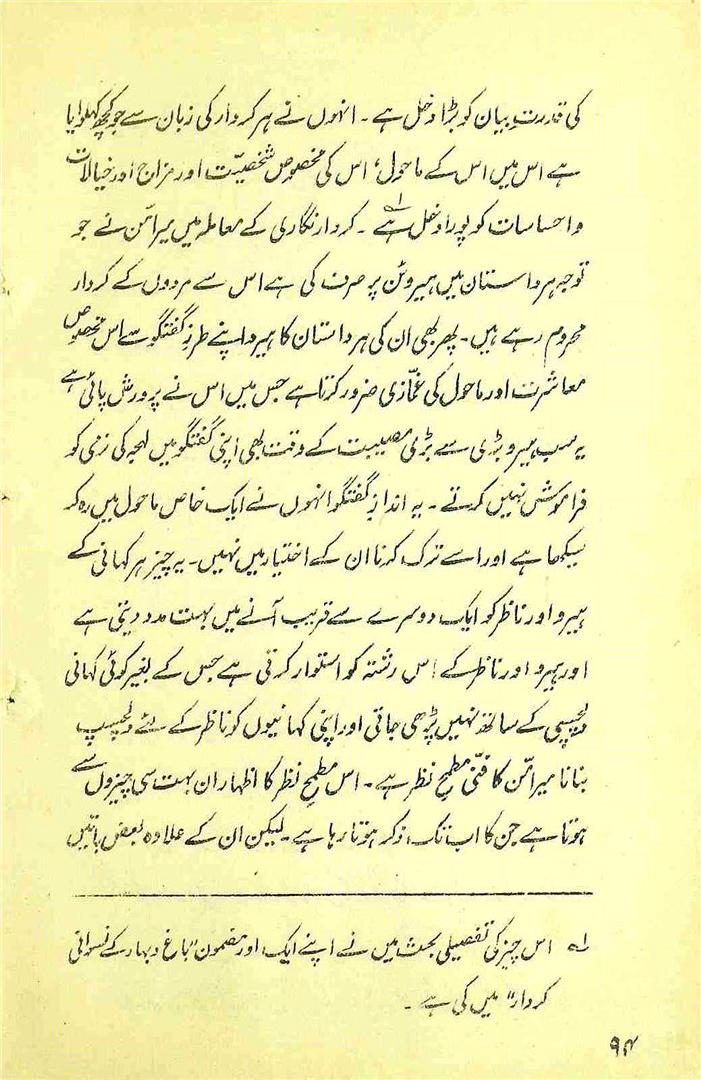 کی قدرتِ بیان کو بڑا دخل ہے۔ انہوں نے ہر کردار کی زبان سے جو کچھ کہلوایا
ہے اس میں اس کے ماحول، اس کی مخصوص شخصیّت اور مزاج اور خیالات
و احساسات کو پورا دخل ہے۱؎۔ کردار نگاری کے معاملہ میں میرامّن نے جو
توجہ ہر داستان میں ہیروئن پر صرف کی ہے اس سے مردوں کے کردار
محروم رہے ہیں۔ پھر بھی ان کی ہر داستان کا ہیرو اپنے طرزِ گفتگو سے اس مخصوص
معاشرت اور ماحول کی غمّازی ضرور کرتا ہے جس میں اس نے پرورش پائی ہے
یہ سب ہیرو بڑی سے بڑی مصیبت کے وقت بھی اپنی گفتگو میں لہجہ کی نرمی کو
فراموش نہیں کرتے۔ یہ اندازِ گفتگو انہوں نے ایک خاص ماحول میں رہ کر
سیکھا ہے اور اسے ترک کرنا ان کے اختیار میں نہیں۔ یہ چیز ہر کہانی کے
ہیرو اور ناظر کو ایک دوسرے سے قریب آنے میں بہت مدد دیتی ہے
اور ہیرو اور ناظر کے اس رشتہ کو استوار کرتی ہے جس کے بغیر کوئی کہانی
دلچسپی کے ساتھ نہیں پڑھی جاتی اور اپنی کہانیوں کو ناظر کے لئے دلچسپ
بنانا میرامّن کا فنّی مطمح نظر ہے۔ اس مطمحِ نظر کا اظہار ان بہت سی چیزوں سے
ہوتا ہے جن کا اب تک ذکر ہوتا رہا ہے۔ لیکن ان کے علاوہ بعض باتیں
۱؎ اس چیز کی تفصیلی بحث میں نے اپنے ایک اور مضمون "باغ و بہار کے نسوانی
کردار" میں کی ہے۔
۹۴